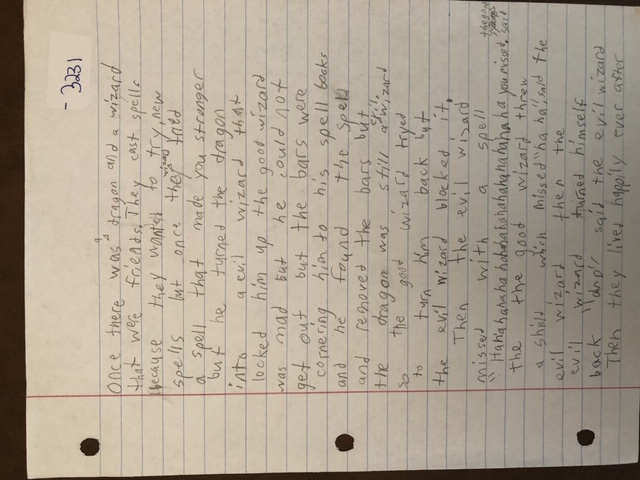 -3231
Once there was a dragon and a wizard
that were friends. They cast spells
because they wanted to try new
spells but once the wizard tried
a spell that made you stronger
but he turned the dragon
into a evil wizard that
locked him up the good wizard
was mad but he could not
get out but the bars were
cornering him to his spell books
and he found the spell
and removed the bars but
the dragon was still a evil wizard
so the good wizard tryed
to turn him back but
the evil wizard blocked it.
Then the evil wizard
missed with a spell
"Hahahahaha hahahahahahahahahahaha you missed. said the good
the the good wizard threw
a shild which missed "ha ha", said the
evil wizard then the
evil wizard turned himself
back said the evil wizard
Then they lived happily ever after